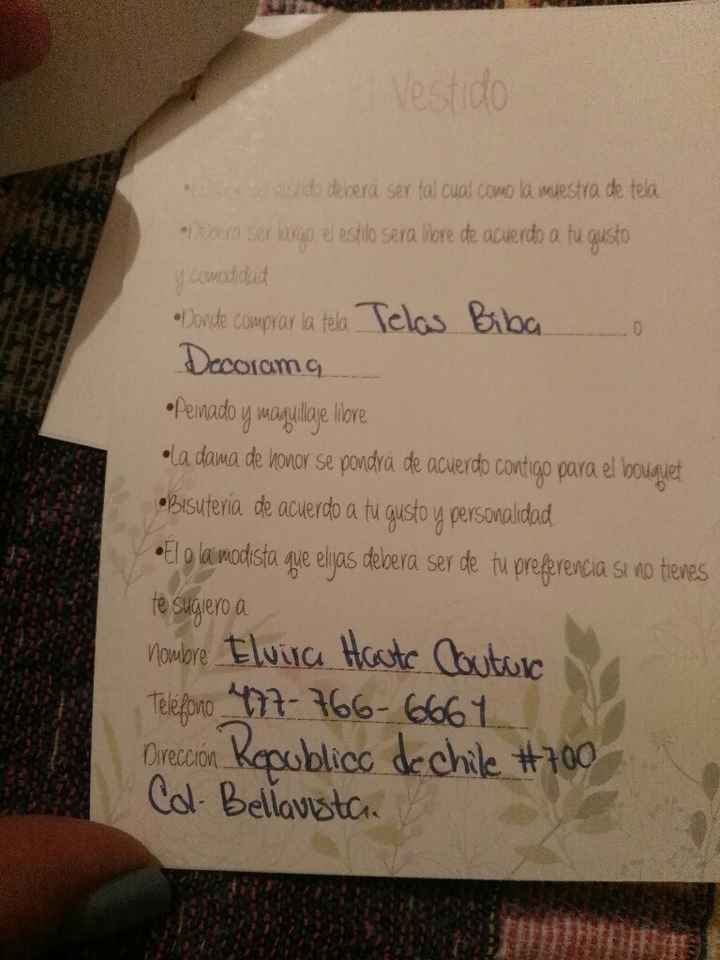 El Vestido
• vestido deberá ser tal cual como la muestra de tela
• Deberá ser largo el estilo será libre de acuerdo a tu gusto
y comodidad
• Donde comprar la tela Telas Biba o
Decorama
• Peinado y maquillaje libre
• La dama de honor se pondrá de acuerdo contigo para el bouquet
• Bisutería de acuerdo a tu gusto y personalidad
• El o la modista que elijas deberá ser de tu preferencia si no tienes
te sugiero a
Nombre Elvira Haute Couture
Teléfono 477-766-6661
Dirección Republica de chile #700
Col. Bellavista.